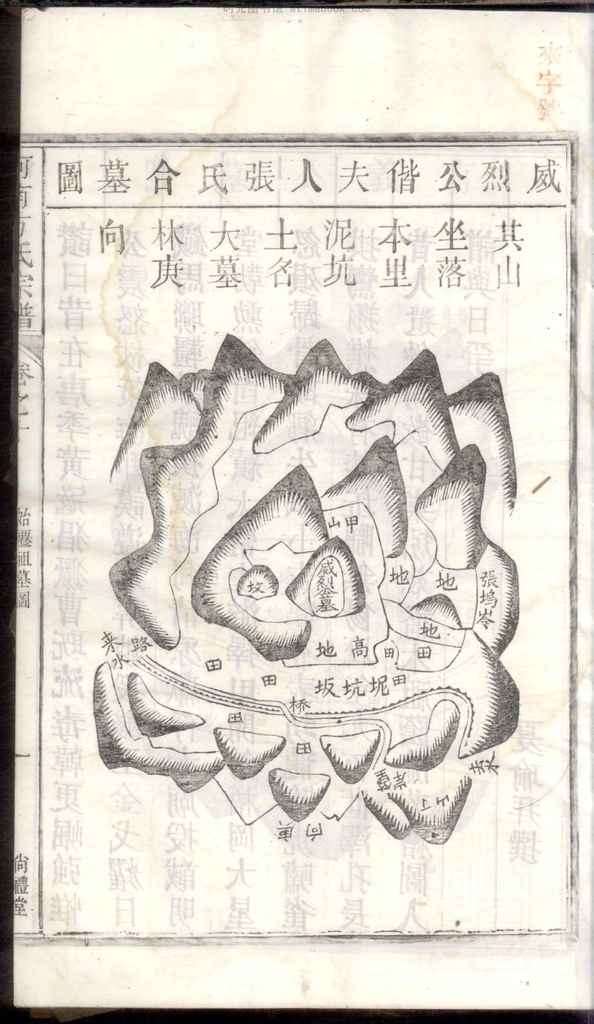 來字號
威烈公偕夫人張氏合墓圖
其山
坐落
本里
泥坑
土名
大墓
林庚
向
河南方氏宗譜
卷之
始遷祖墓圖
一
尚禮堂
甲山
威烈公墓
坟
地
地
張塢岺
地
高地
田
田
来水
路
田
田
坭坑坂
田
桥
田
田
来
向